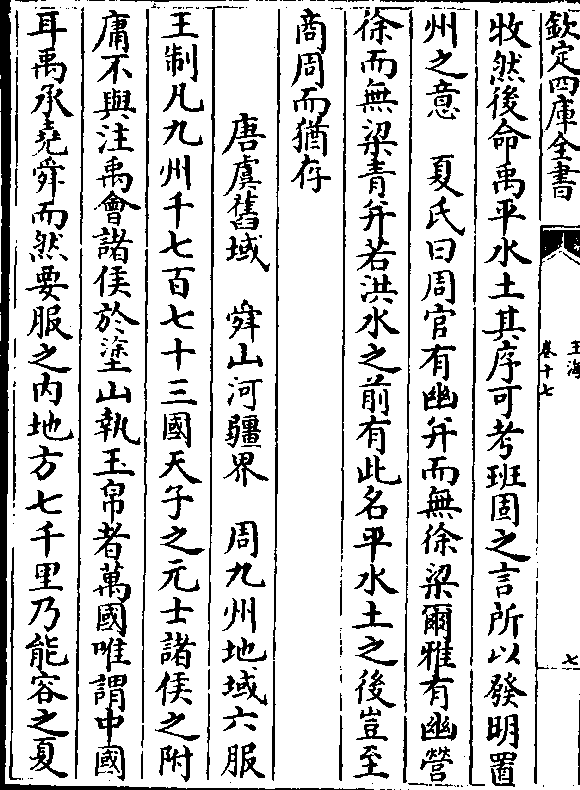 欽定四庫全書
玉海
卷十七
七
牧然後命禹平水土其序可考班固之言所以發明置
州之意　夏氏曰周官有幽并而無徐梁爾雅有幽營
徐而無梁青并若洪水之前有此名平水土之後豈至
商周而猶存
唐虞舊域　舜山河疆界　周九州地域六服
王制凡九州千七百七十三國天子之元士諸侯之附
庸不與注禹會諸侯於塗山執玉帛者萬國唯謂中國
耳禹承堯舜而然要服之内地方七千里乃能容之夏